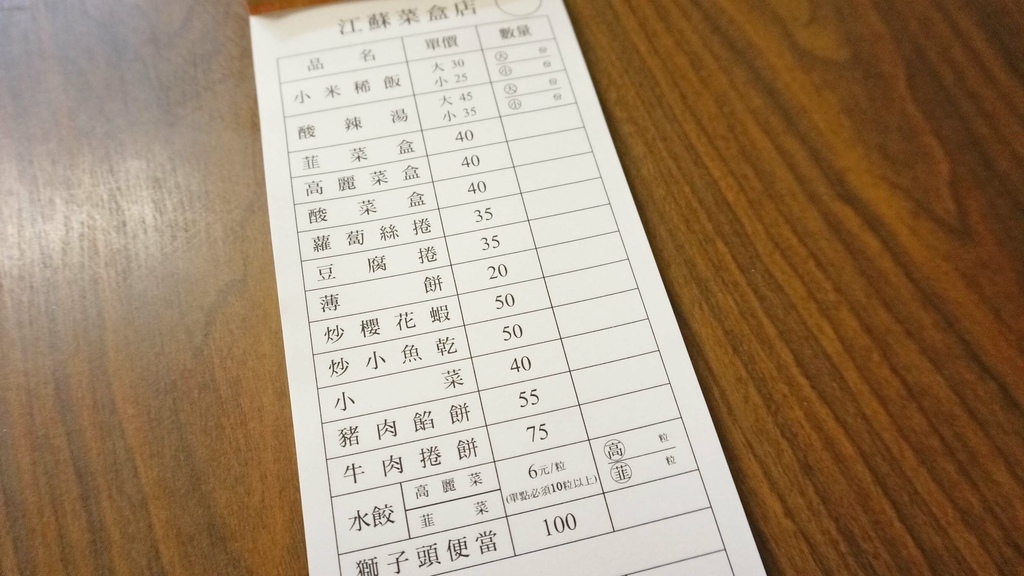 江蘇菜盒店
品名 單價 數量
小米稀飯 大 30 大 份
小 25 小 份
酸辣湯 大 45 大 份
小 35 小 份
韮菜盒 40
高麗菜盒 40
酸菜盒 40
蘿蔔絲捲 35
豆腐捲 35
薄餅 20
炒櫻花蝦 50
炒小魚乾 50
小菜 40
豬肉餡餅 55
牛肉捲餅 75
水餃 高麗菜 6元/粒 高 粒
韮菜 (單點必須10粒以上) 韮 粒
獅子頭便當 100